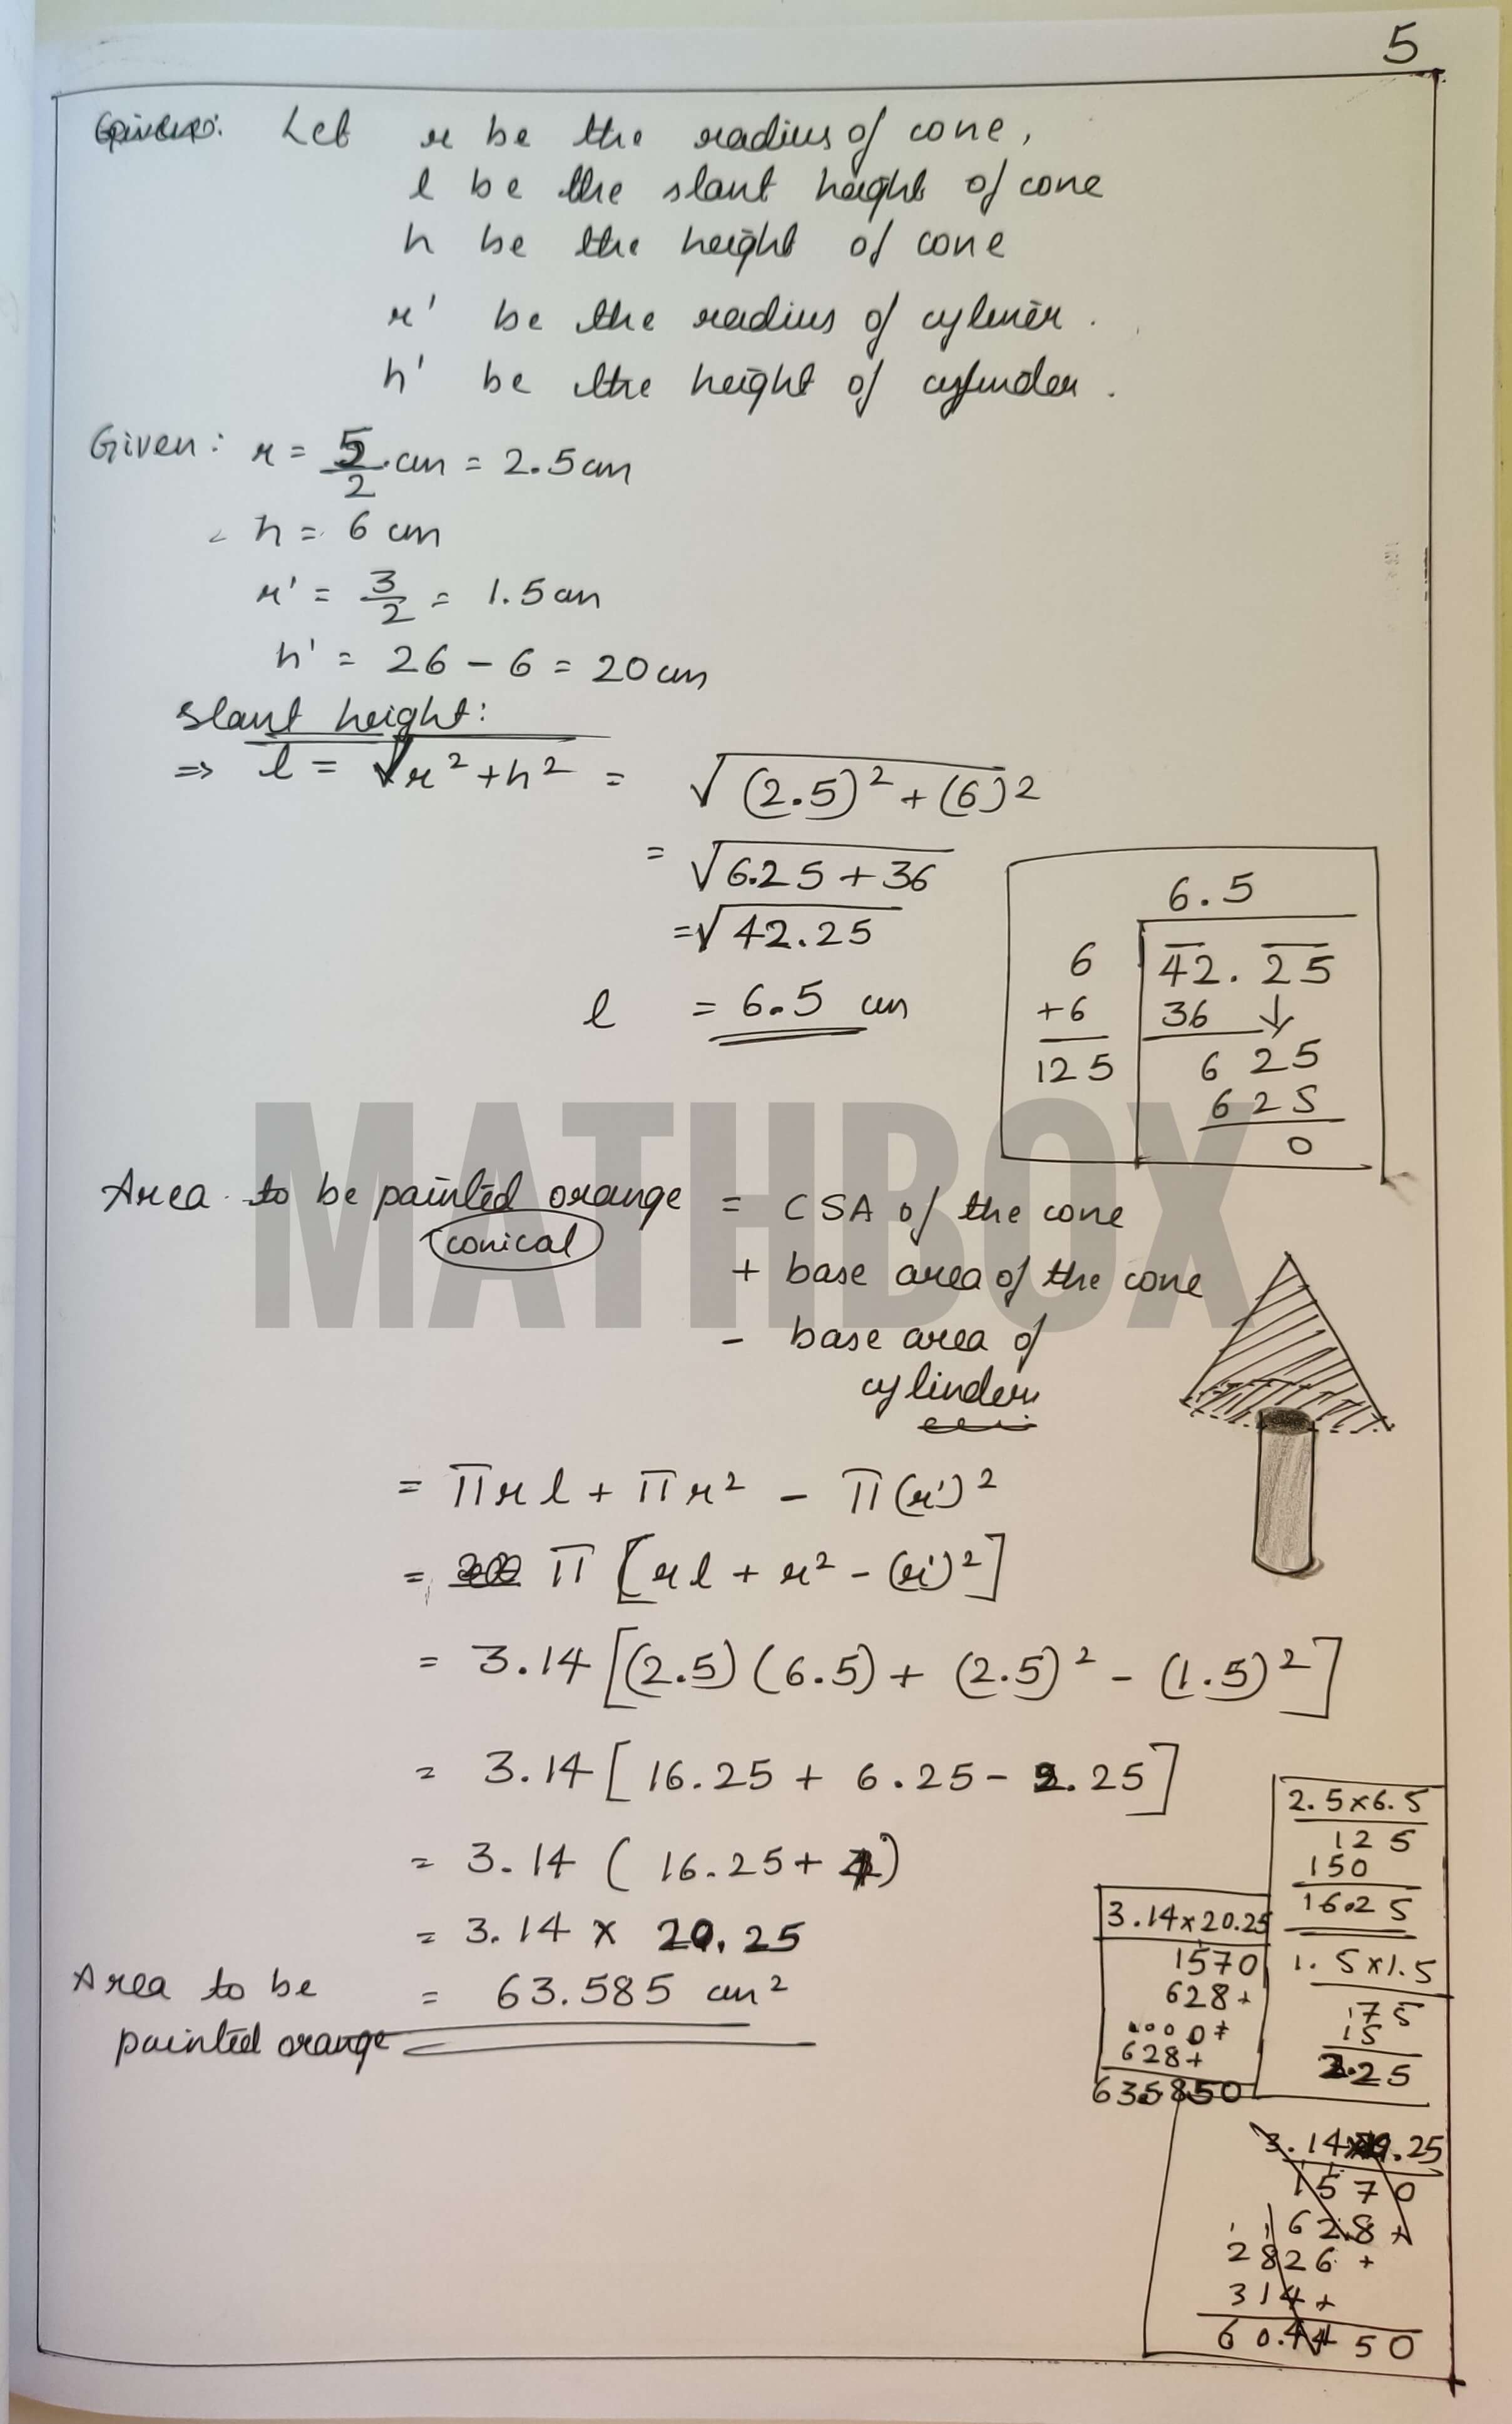 5
Given: Let r be the radius of cone,
l be the slant height of cone
h be the height of cone
r' be the radius of cyliner.
h' be the height of cylinder.
Given: r = 5/2 cm = 2.5cm
h = 6 cm
r' = 3/2 = 1.5cm
h' = 26 - 6 = 20cm
slant height:
⇒ l = √r² + h² = √(2.5)² + (6)²
= √6.25 + 36
= √42.25
l = 6.5 cm
6.5
6 42. 25
+6 36 ↓
125 6 25
6 25
0
MATHBOX
Area to be painted orange = CSA of the cone
(conical)
+ base area of the cone
- base area of
cylinder
= πrl + πr² - π(r')²
= π [rl + r² - (r')²]
= 3.14 [(2.5) (6.5) + (2.5)² - (1.5)²]
= 3.14 [16.25 + 6.25 - 2.25]
= 3.14 (16.25 + 4)
= 3.14 × 20.25
Area to be = 63.585 cm²
painted orange
2.5×6.5
125
150
16.25
1.5×1.5
75
15
2.25
3.14×20.25
1570
628+
0000+
628+
63.5850
3.14×19.25
1570
628+
2826+
314+
60.4450